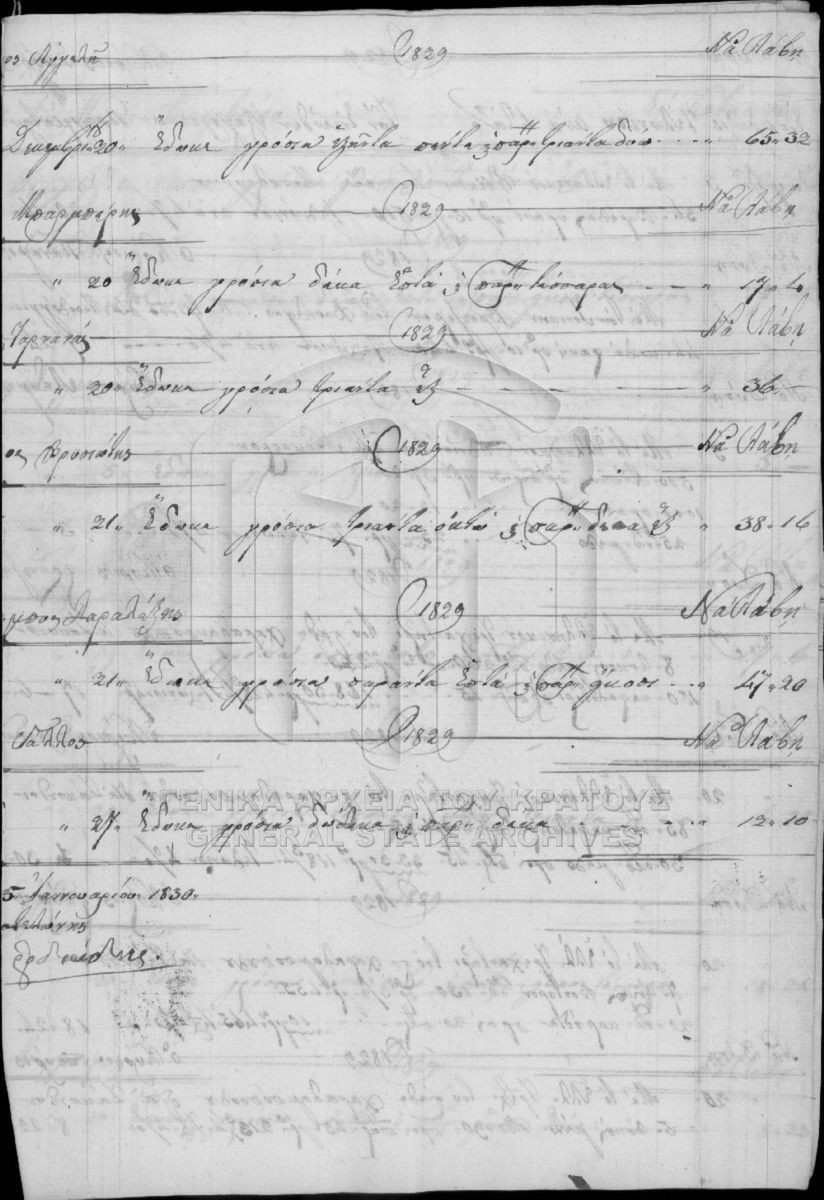 ος Αγγελῆ 1829 Νὰ Λάβη
Δεκεμβρίου 20 " Ἔδωκε γρόσια ἑξῆντα πέντε ϗ παρ: τριανταδυο " 65 " 32
Μπαρμπέρης 1829 Νὰ Λάβη
" 20 Ἔδωκε γρόσια δέκα ἑπτὰ ϗ παρ: τέσσαρας " 17 " 4
Ταρνανᾶς 1829 Νὰ Λάβη
" 20 " Ἔδωκε γρόσια τριαντα ἓξ " 36 " -
ος Βρυσιώτης 1829 Νὰ Λάβη
" 21 " Ἔδωκε γρόσια τριαντα ὀκτὼ ϗ παρ: δεκα ἓξ " 38 " 16
1829 Νὰ Λάβη
" 21 " Ἔδωκε γρόσια σαραντα ἑπτὰ ϗ παρ: ἤκοσι " 47 " 20
1829 Νὰ Λάβη
" 27 " Ἔδωκε γρόσια δώδεκα ϗ παρ: δεκα " 12 " 10
ΓΕΝΙΚΑ ΑΡΧΕΙΑ ΤΟΥ ΚΡΑΤΟΥΣ
GENERAL STATE ARCHIVES
5 Ἰαννουαρίου 1830